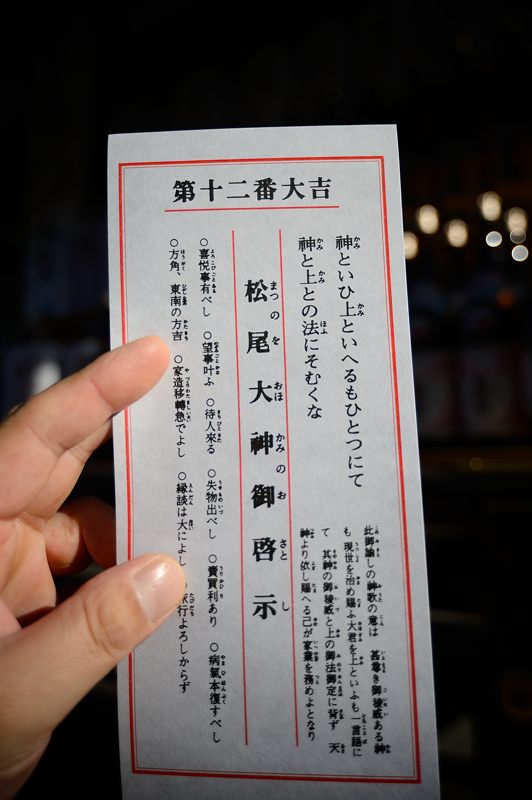 第十二番大吉
神といひ上といへるもひとつにて
神と上との法にそむくな
此御諭しの神歌の意は 甚尊き御稜威ある神
も 現世を治め賜ふ大君を上といふも一言語に
て 其神の御稜威と上の御法御定に背ず 天
神より依し賜へる己が家業を務めよとなり
松尾大神御啓示
○喜悦事有べし ○望事叶ふ ○待人來る ○失物出べし ○賣買利あり ○病氣本復すべし
○方角、東南の方吉 ○家造移轉急でよし ○縁談は大によし 旅行よろしからず